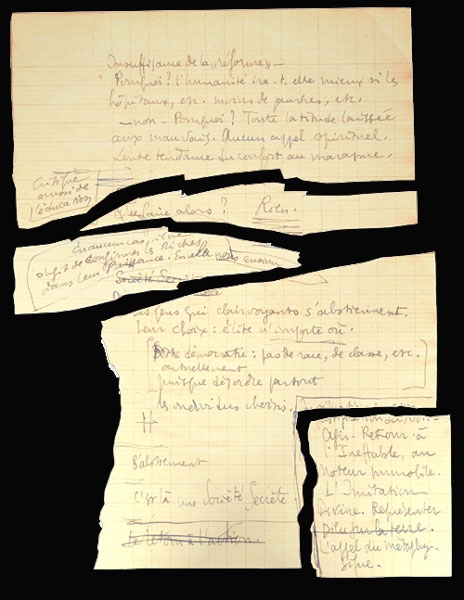 Insuffisance de la "réforme" —
Pourquoi? l'humanité ira-t-elle mieux si les
hôpitaux, etc. moins de pauvres, etc.
— non — Pourquoi? Toute latitude laissée
aux mauvais. Aucun appel spirituel.
tendance du confort au marasme.
Critique
aussi de
l'éducation
Que faire alors? Rien.
En aucun cas,
objet de confirmer les Riches
dans leur Puissance. En
Société Se
Les gens qui clairvoyants s'abstiennent.
Leur choix: élite n'importe où.
démocratie: pas de race, de classe, etc.
actuellement
puisque désordre partout
les individus choisis.
S'abstiennent
C'est là une Société Secrète.
Le retour à l'action.
Retour à
l'Ineffable, au
moteur immobile.
L'Imitation
Divine. Représenter
Dieu sur la terre.
L'appel du métaphy-
sique.